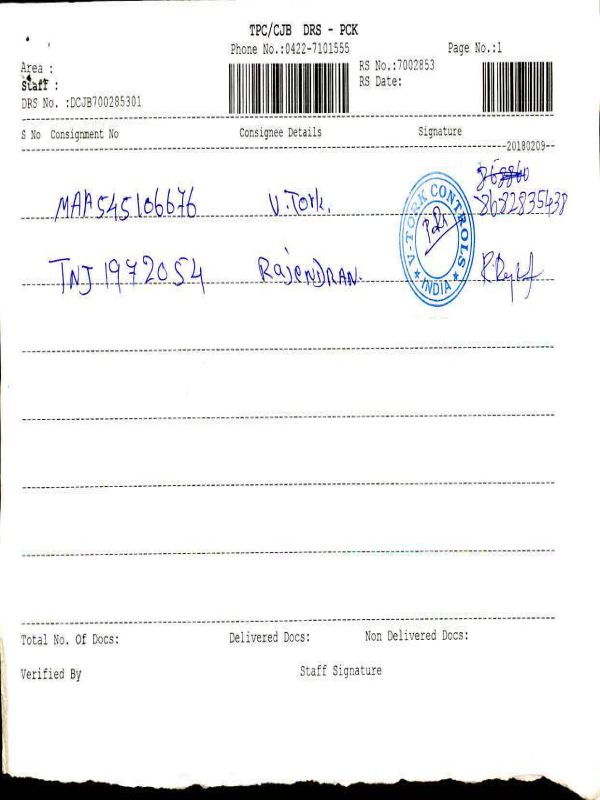 TPC/CJB DRS - PCK
Phone No.:0422-7101555 Page No.:1
Area : RS No.:7002853
Staff : RS Date:
DRS No. :DCJB700285301
S No Consignment No Consignee Details Signature
20180209
MAA545106676 V.Tork. 8682835438
V-TORK CONTROLS
INDIA
TNJ1972054 RajeNDRAN.
Total No. Of Docs: Delivered Docs: Non Delivered Docs:
Verified By Staff Signature